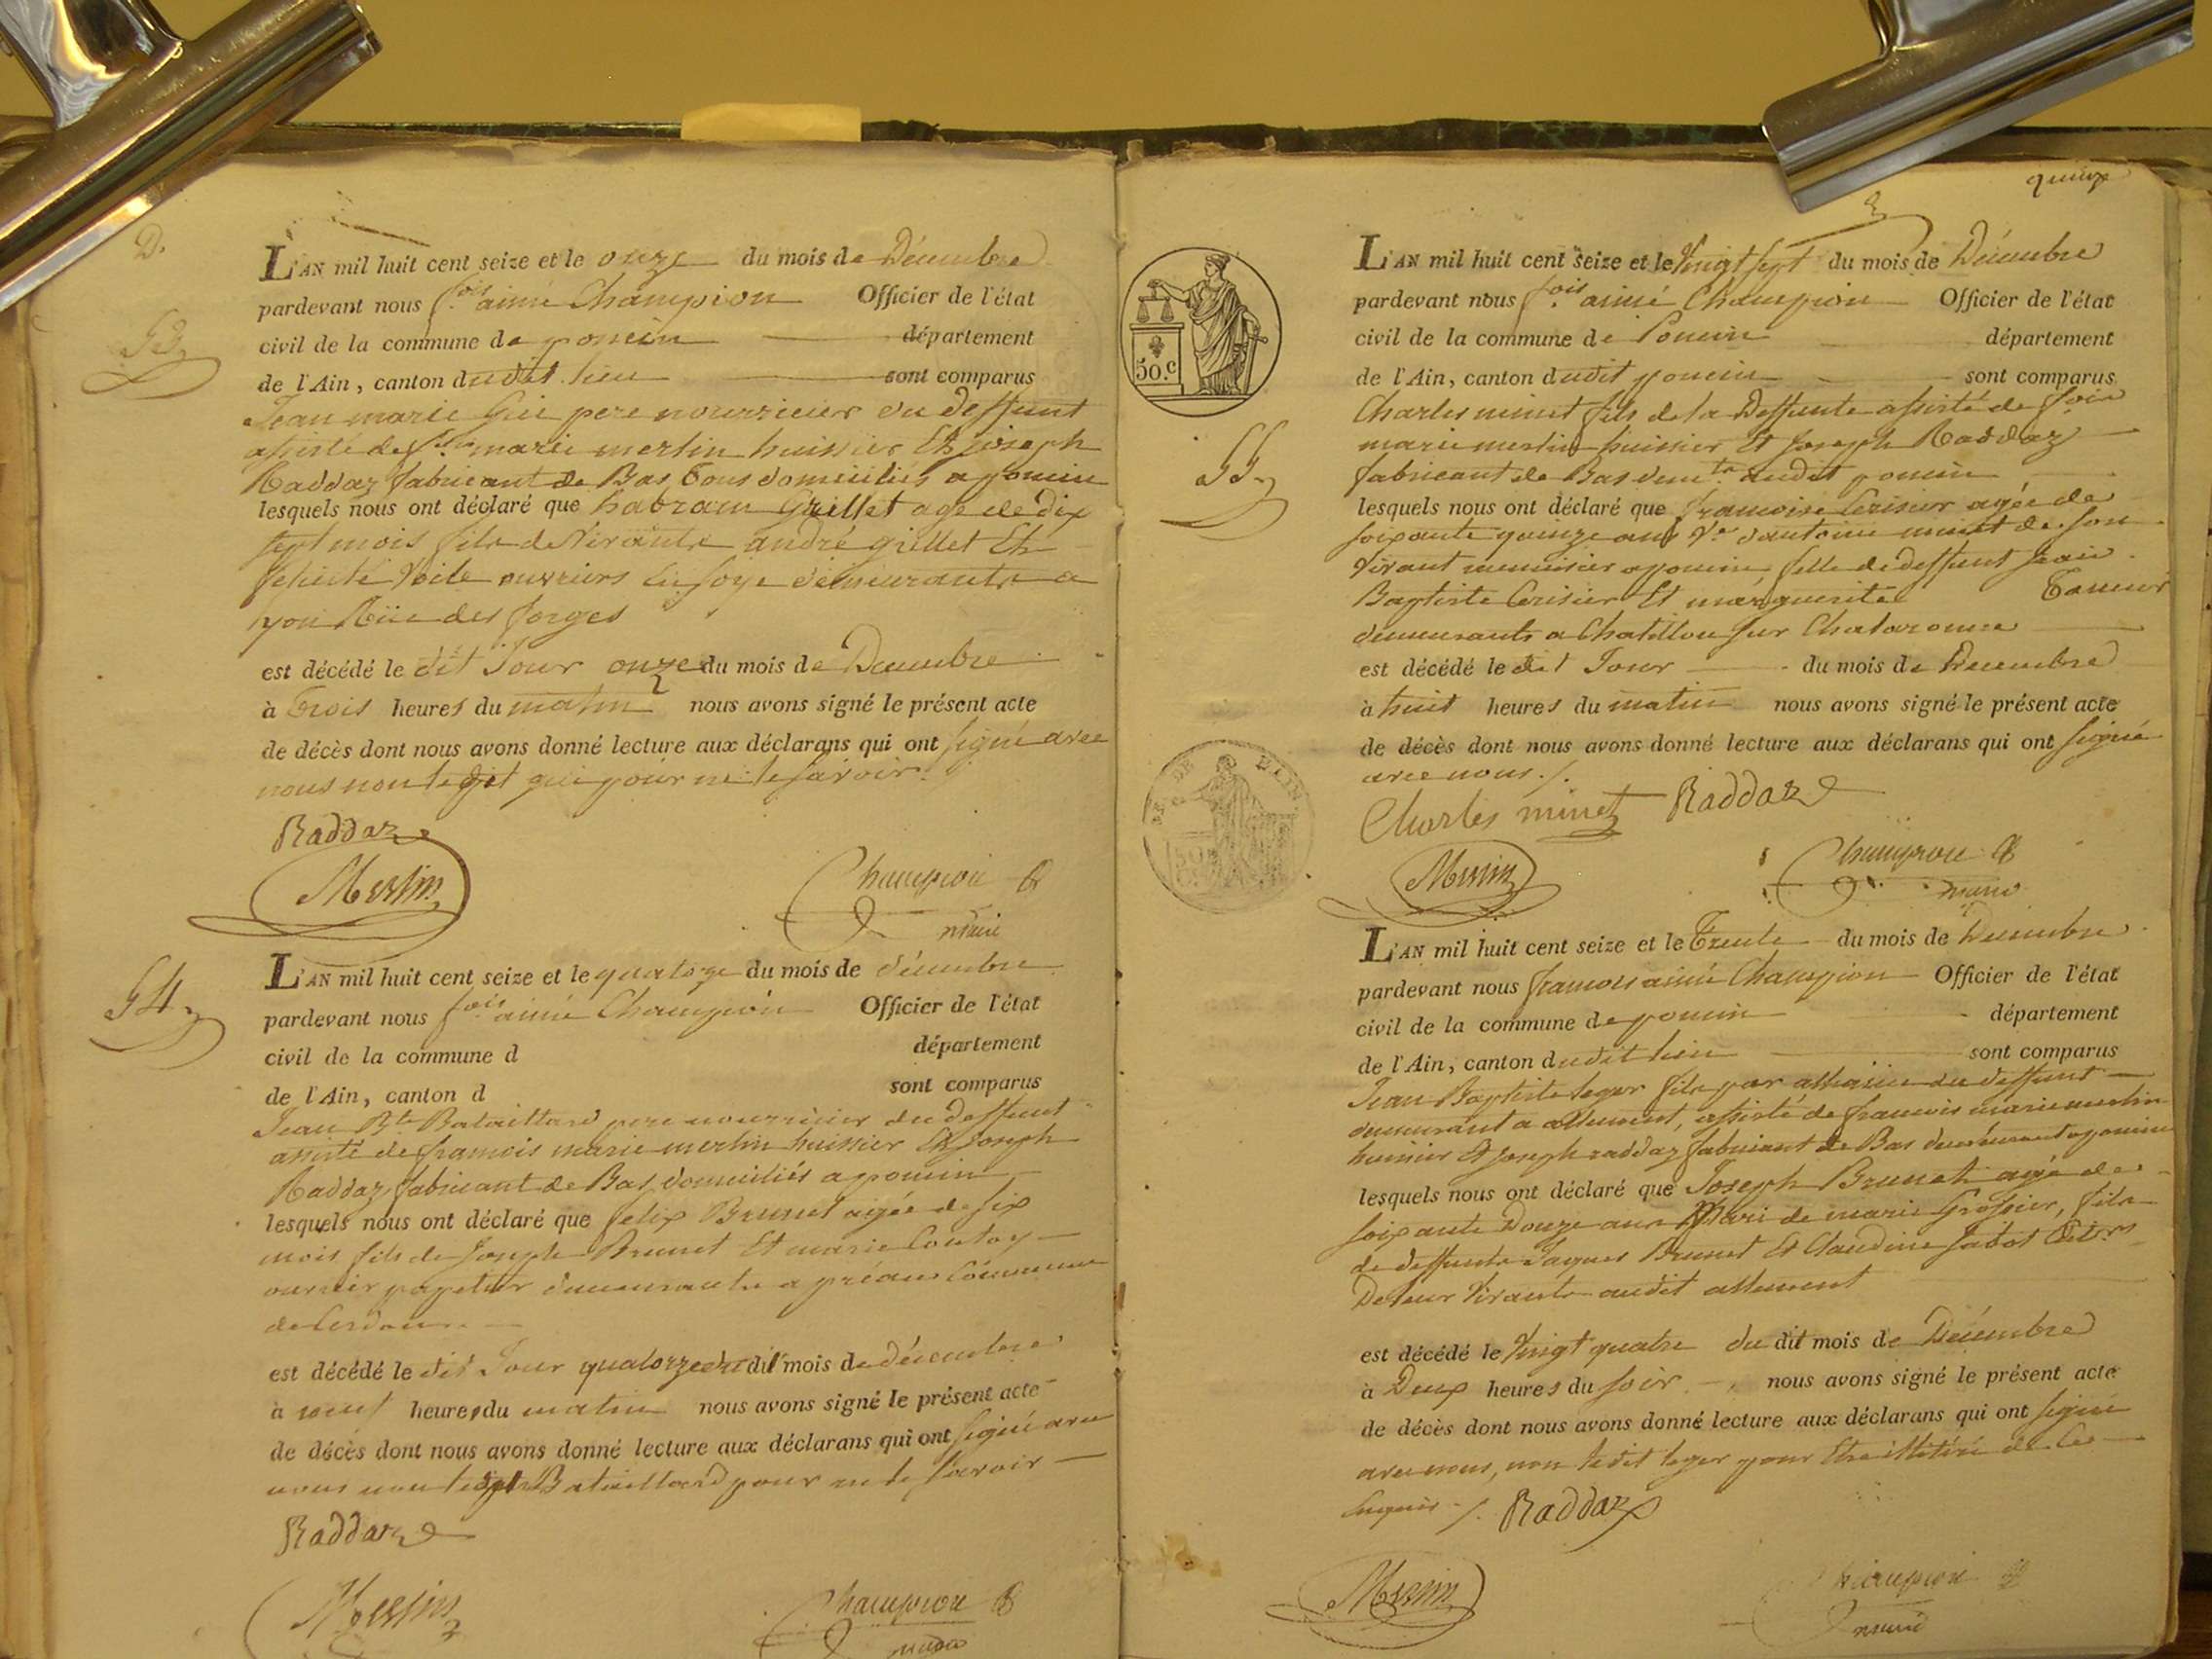 D.
53
L'AN mil huit cent seize et le onze du mois de Décembre
pardevant nous f.ois aimé Champion Officier de l'état
civil de la commune de poncin département
de l'Ain, canton dudit lieu sont comparus
Jean marie Gui pere nourricier du deffunt
assisté de f.ois marie merlin huissier Et Joseph
Raddaz fabricant de Bas Tous domiciliés a poncin
lesquels nous ont déclaré que habram Grillet age de dix
sept mois fils de Vivants andré grillet Et
felicité Voile ouvriers En soye demeurants a
lyon Rüe des forges
est décédé le dit Jour onze du mois de Decembre
à Trois heures du matin nous avons signé le présent acte
de décès dont nous avons donné lecture aux déclarans qui ont signé avec
nous non ledit gui pour ne le savoir
Raddaz
Merlin
Champion
maire
54
L'AN mil huit cent seize et le quatorze du mois de décembre
pardevant nous f.ois aimé Champion Officier de l'état
civil de la commune d département
de l'Ain, canton d sont comparus
Jean B.te Bataillard pere nourricier du deffunt
assisté de francois marie merlin huissier Et Joseph
Raddaz fabricant de Bas domiciliés a poncin
lesquels nous ont déclaré que felix Brunet agée de six
mois fils de Joseph Brunet Et marie
ouvrier papetier demeurants a préau Commune
de Cerdon
est décédé le dit Jour quatorze du dit mois de décembre
à neuf heures du matin nous avons signé le présent acte
de décès dont nous avons donné lecture aux déclarans qui ont signé avec
nous non ledit Bataillard pour ne le savoir
Raddaz
Merlin
Champion
maire
quinze
50.c
55
L'AN mil huit cent seize et le Vingt sept du mois de Décembre
pardevant nous f.ois aimé Champion Officier de l'état
civil de la commune de Poncin département
de l'Ain, canton dudit poncin sont comparus
Charles minet fils de la Deffunte assisté de f.ois
marie merlin huissier Et Joseph Raddaz
fabricant de Bas audit poncin
lesquels nous ont déclaré que francoise Cerisier agée de
soixante quinze ans V.e d'antoine minet de son
vivant menuisier a poncin fille de deffunt Jean
Baptiste Cerisier Et marguerite
demeurants a Chatillon sur Chalaronne
est décédé le dit Jour du mois de Decembre
à huit heures du matin nous avons signé le présent acte
de décès dont nous avons donné lecture aux déclarans qui ont signé
avec nous ./.
Charles minet Raddaz
Merlin
Champion
maire
L'AN mil huit cent seize et le Trente du mois de Decembre
pardevant nous francois aimé Champion Officier de l'état
civil de la commune de poncin département
de l'Ain, canton dudit lieu sont comparus
Jean Baptiste leger fils par alliance du deffunt
demeurant a allement, assisté de francois marie merlin
huissier Et Joseph raddaz fabricant de Bas demeurant a poncin
lesquels nous ont déclaré que Joseph Brunet agé de
soixante Douze ans Mari de marie Grossier, fils
de deffunts Jaques Brunet Et Claudine
De leur Vivants audit allement
est décédé le Vingt quatre du dit mois de Décembre
à Deux heures du soir nous avons signé le présent acte
de décès dont nous avons donné lecture aux déclarans qui ont signé
avec nous, non ledit leger pour Etre illetéré de Ce
Enquis ./. Raddaz
Merlin
Champion
maire